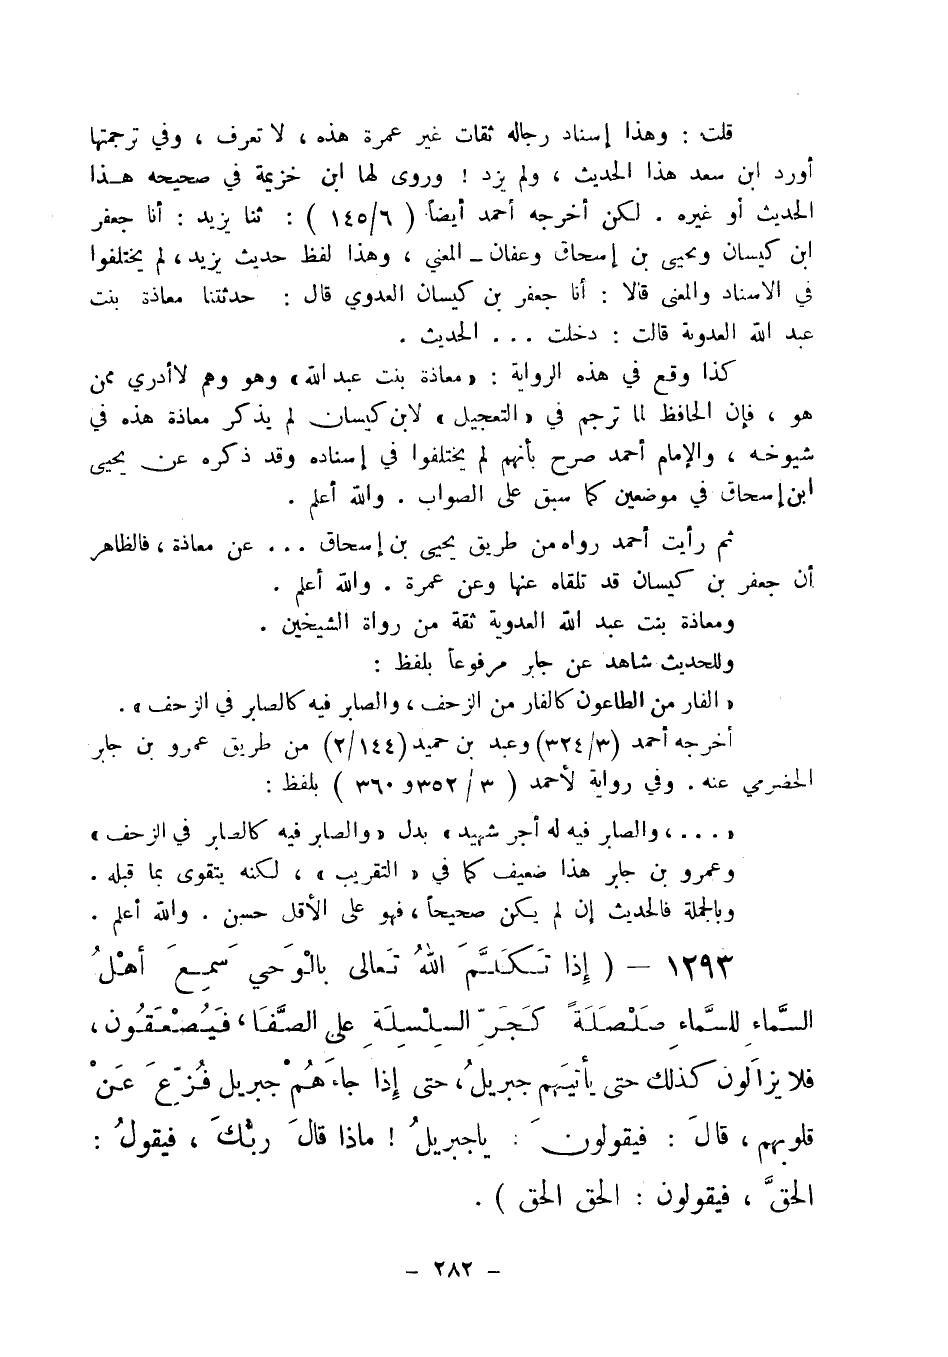 قلت : وهذا إسناد رجاله ثقات غير عمرة هذه ، لا تعرف ، وفي ترجمتها
أورد ابن سعد هذا الحديث ، ولم يزد ! وروى لها ابن خزيمة في صحيحه هـذا
الحديث أو غيره . لكن أخرجه أحمد أيضاً ( ٦/١٤٥ ) : ثنا يزيد : أنا جعفر
ابن كيسان ويحيى بن إسحاق وعفان ـ المعني ، وهذا لفظ حديث يزيد ، لم يختلفوا
في الاسناد والمعنى قالا : أنا جعفر بن كيسان العدوي قال : حدثتنا معاذة بنت
عبد الله العدوية قالت : دخلت ... الحديث .
كذا وقع في هذه الرواية : « معاذة بنت عبد الله » وهو وهم لا أدري ممن
هو ، فإن الحافظ لما ترجم في « التعجيل » لابن كيسان لم يذكر معاذة هذه في
شيوخه ، والإمام أحمد صرح بأنهم لم يختلفوا في إسناده وقد ذكره عن يحيى
ابن إسحاق في موضعين كما سبق على الصواب . والله أعلم .
ثم رأيت أحمد رواه من طريق يحيى بن إسحاق ... عن معاذة ، فالظاهر
أن جعفر بن كيسان قد تلقاه عنها وعن عمرة . والله أعلم .
ومعاذة بنت عبد الله العدوية ثقة من رواة الشيخين .
وللحديث شاهد عن جابر مرفوعاً بلفظ :
« الفار من الطاعون كالفار من الزحف ، والصابر فيه كالصابر في الزحف » .
أخرجه أحمد (٣/٣٢٤) وعبد بن حميد (١٤٤/٢) من طريق عمرو بن جابر
الحضرمي عنه . وفي رواية لأحمد ( ٣/٣٥٢ و ٣٦٠ ) بلفظ :
« ... ، والصابر فيه له أجر شهيد » بدل « والصابر فيه كالصابر في الزحف »
وعمرو بن جابر هذا ضعيف كما في « التقريب » ، لكنه يتقوى بما قبله .
وبالجملة فالحديث إن لم يكن صحيحاً ، فهو على الأقل حسن . والله أعلم .
١٢٩٣ – ( إذا تَكَلَّمَ اللهُ تَعالى بالْوَحي سَمِعَ أهْلُ
السَّماءِ للسَّماءِ صَلْصَلَةً كَجَرّ السلْسلَةِ على الصَّفَا ، فَيُصْعَقُون ،
فلا يزالون كذلك حتى يأتيَهم جبريلُ ، حتى إذا جاءَهُمْ جبريل فُزّعَ عَنْ
قلوبهم ، قالَ : فيقولونَ : ياجبريلُ ! ماذا قالَ ربُّكَ ، فيقولُ :
الحقَّ ، فيقولون : الحق الحق ) .
– ٢٨٢ –